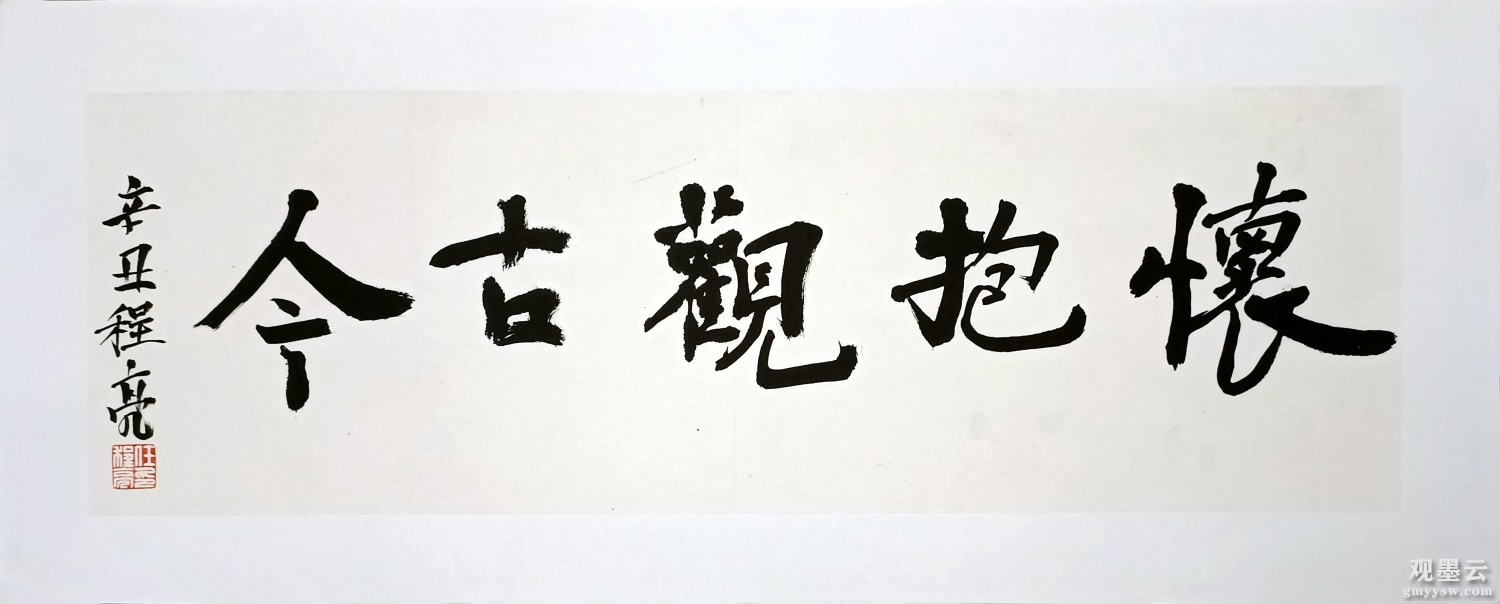 懷抱觀古今
辛丑程亮
任程亮印
观墨云
gmyysw.com